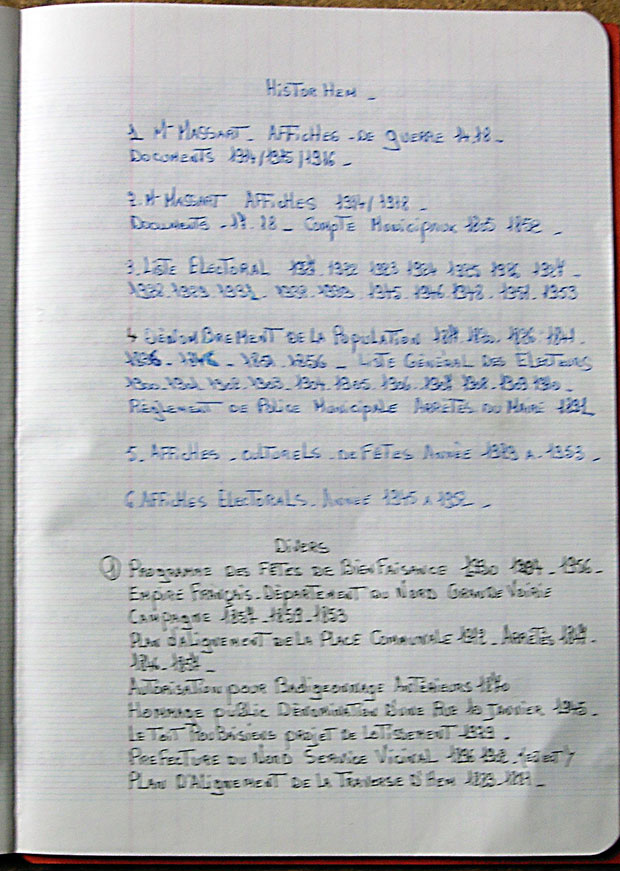 HisTor Hem _
1 Mr MASSART - AFFiCHES - DE guerre 14.18 _
DOCUMENTS 1914/1915/1916 _
2. Mr MASSART AFFiCHES 1914/1918 _
DOCUMENTS - 17. 18 _ COMPTE Municipaux 1852 _
3. LisTE ÉLECTORAL 1922 1923 1924 1925 1926 1927 _
1928. 1929. 1931. 1945. 1946. 1948. 1951. 1953
4 DÉNOMBREMENT DE LA POPULATION 1836. 1841.
1846 _ 1851. 1856 _ LisTE GÉNÉRAL DES ÉLECTEURS
1900. 1901. 1902. 1903. 1904. 1905. 1906. 1907. 1908. 1909. 1910. _
RÈGLEMENT DE POLiCE MuniCiPALE ARRÊTÉS DU MAIRE
5_ AFFiCHES _ CULTURELS _ DE FÊTES ANNÉE A. 1953 _
6. AFFiCHES ÉLECTORALS _ ANNÉE 1945 A 1952 _
DiVERS
1 PROGRAMME DES FÊTES DE BiENFAiSANCE 1930 _ 1956 _
EMPiRE FRANÇAiS _ DÉPARTEMENT DU NORD GRANDE VOiRiE
CAMPAGNE 1853
PLAN D'ALIGNEMENT DE LA PLACE COMMUNALE _ ARRÊTÉS
AUTORiSATiON POUR BADiGEONNAGE 1870
HOMMAGE PUBLiC DÉNOMiNATiON D'UNE RUE 10 JANViER 1945 _
LE TOiT ROUBAiSiENS PROJET DE LOTiSSEMENT 1929 _
PREFECTURE DU NORD SERViCE ViCiNAL
PLAN D'ALiGNEMENT DE LA TRAVERSE D'HEM _